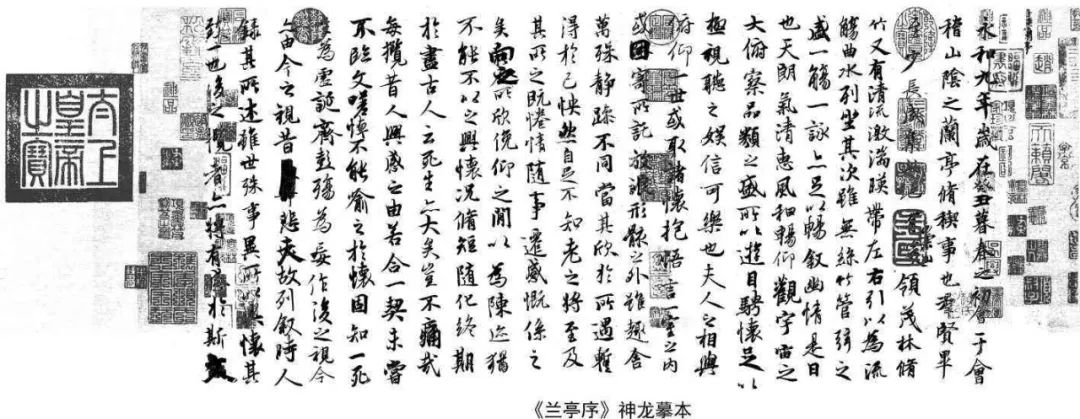 永和九年歲在癸丑暮春之初會于會
稽山陰之蘭亭脩稧事也羣賢畢
至少長崇山領茂林脩
竹又有清流激湍暎帶左右引以為流
觴曲水列坐其次雖無絲竹管弦之
盛一觴一詠亦足以暢敘幽情是日
也天朗氣清惠風和暢仰觀宇宙之
大俯察品類之盛所以遊目騁懷足以
極視聽之娛信可樂也夫人之相與
俯仰一世或取諸懷抱悟言一室之內
或因寄所託放浪形骸之外雖趣舍
萬殊靜躁不同當其欣於所遇暫
得於己怏然自足不知老之將至及
其所之既惓情隨事遷感慨係之
矣向之所欣俛仰之間以為陳迹猶
不能不以之興懷況脩短隨化終期
於盡古人云死生亦大矣豈不痛哉
每攬昔人興感之由若合一契未嘗
不臨文嗟悼不能喻之於懷固知一死
生為虛誕齊彭殤為妄作後之視今
亦由今之視昔悲夫故列敘時人
錄其所述雖世殊事異所以興懷其
致一也後之攬者亦將有感於斯文
太上
皇帝
之寶
《兰亭序》神龙摹本